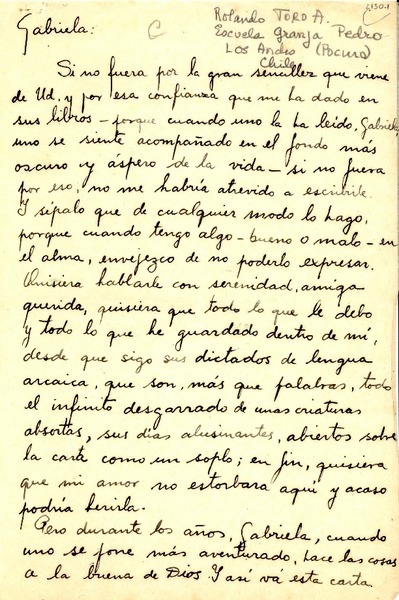 Gabriela:
C
Rolando TORO A.
Escuela Granja Pedro
Los Andes (Pocuro)
Chile
Si no fuera por la gran sencillez que viene
de Ud. y por esa confianza que me ha dado en
sus libros – porque cuando uno la ha leido, Gabriela,
uno se siente acompañado en el fondo más
oscuro y áspero de la vida – si no fuera
por eso, no me habría atrevido a escribirle.
Y sépalo que de cualquier modo lo hago,
porque cuando tengo algo – bueno o malo – en
el alma, envejezco de no poderlo expresar.
Quisiera hablarle con serenidad, amiga
querida, quisiera que todo lo que le debo
y todo lo que he guardado dentro de mí,
desde que sigo sus dictados de lengua
arcaica, que son, más que palabras, todo
el infinito desgarrado de unas criaturas
absortas, sus días alusinantes, abiertos sobre
la carte como un soplo; en fin, quisiera
que mi amor no estorbara aquí y acaso
podría herirla.
Pero durante los años, Gabriela, cuando
uno se pone más aventurado, hace las cosas
a la buena de Dios. Y así vá esta carta